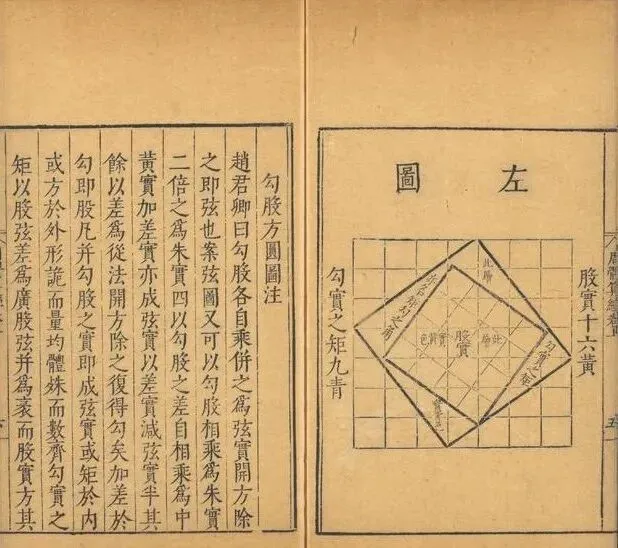 左圖
股實十六黃
股實
勾實之矩
勾實之矩九青
五
勾股方圓圖注
趙君卿曰勾股各自乘併之為弦實開方除
之即弦也案弦圖又可以勾股相乘為朱實
二倍之為朱實四以勾股之差自相乘為中
黃實加差實亦成弦實以差實減弦實半其
餘以差為從法開方除之復得勾矣加差於
勾即股凡并勾股之實即成弦實或矩於內
或方於外形詭而量均體殊而數齊勾實之
矩以股弦差為廣股弦并為袤而股實方其